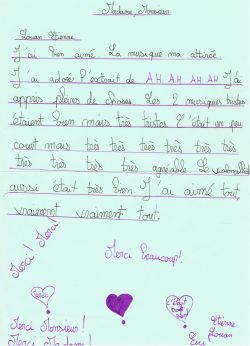 Madame, Monsieur
Louan Etienne
J'ai bien aimé. La musique ma attirée.
J'ai adoré l'extrait de AH AH AH AH J'ai
appris pleins de choses. Les 2 musiques tristes
étaient bien mais très tristes C'était un peu
court mais très très très très très très
très très très très agréable. Le violoncelle
aussi était très bien. J'ai aimé tout,
vraiment vraiment tout.
Merci! Merci!
Merci beaucoup!
Merci
c'était
Etienne
Louan
Merci Monsieur!
Merci Madame!